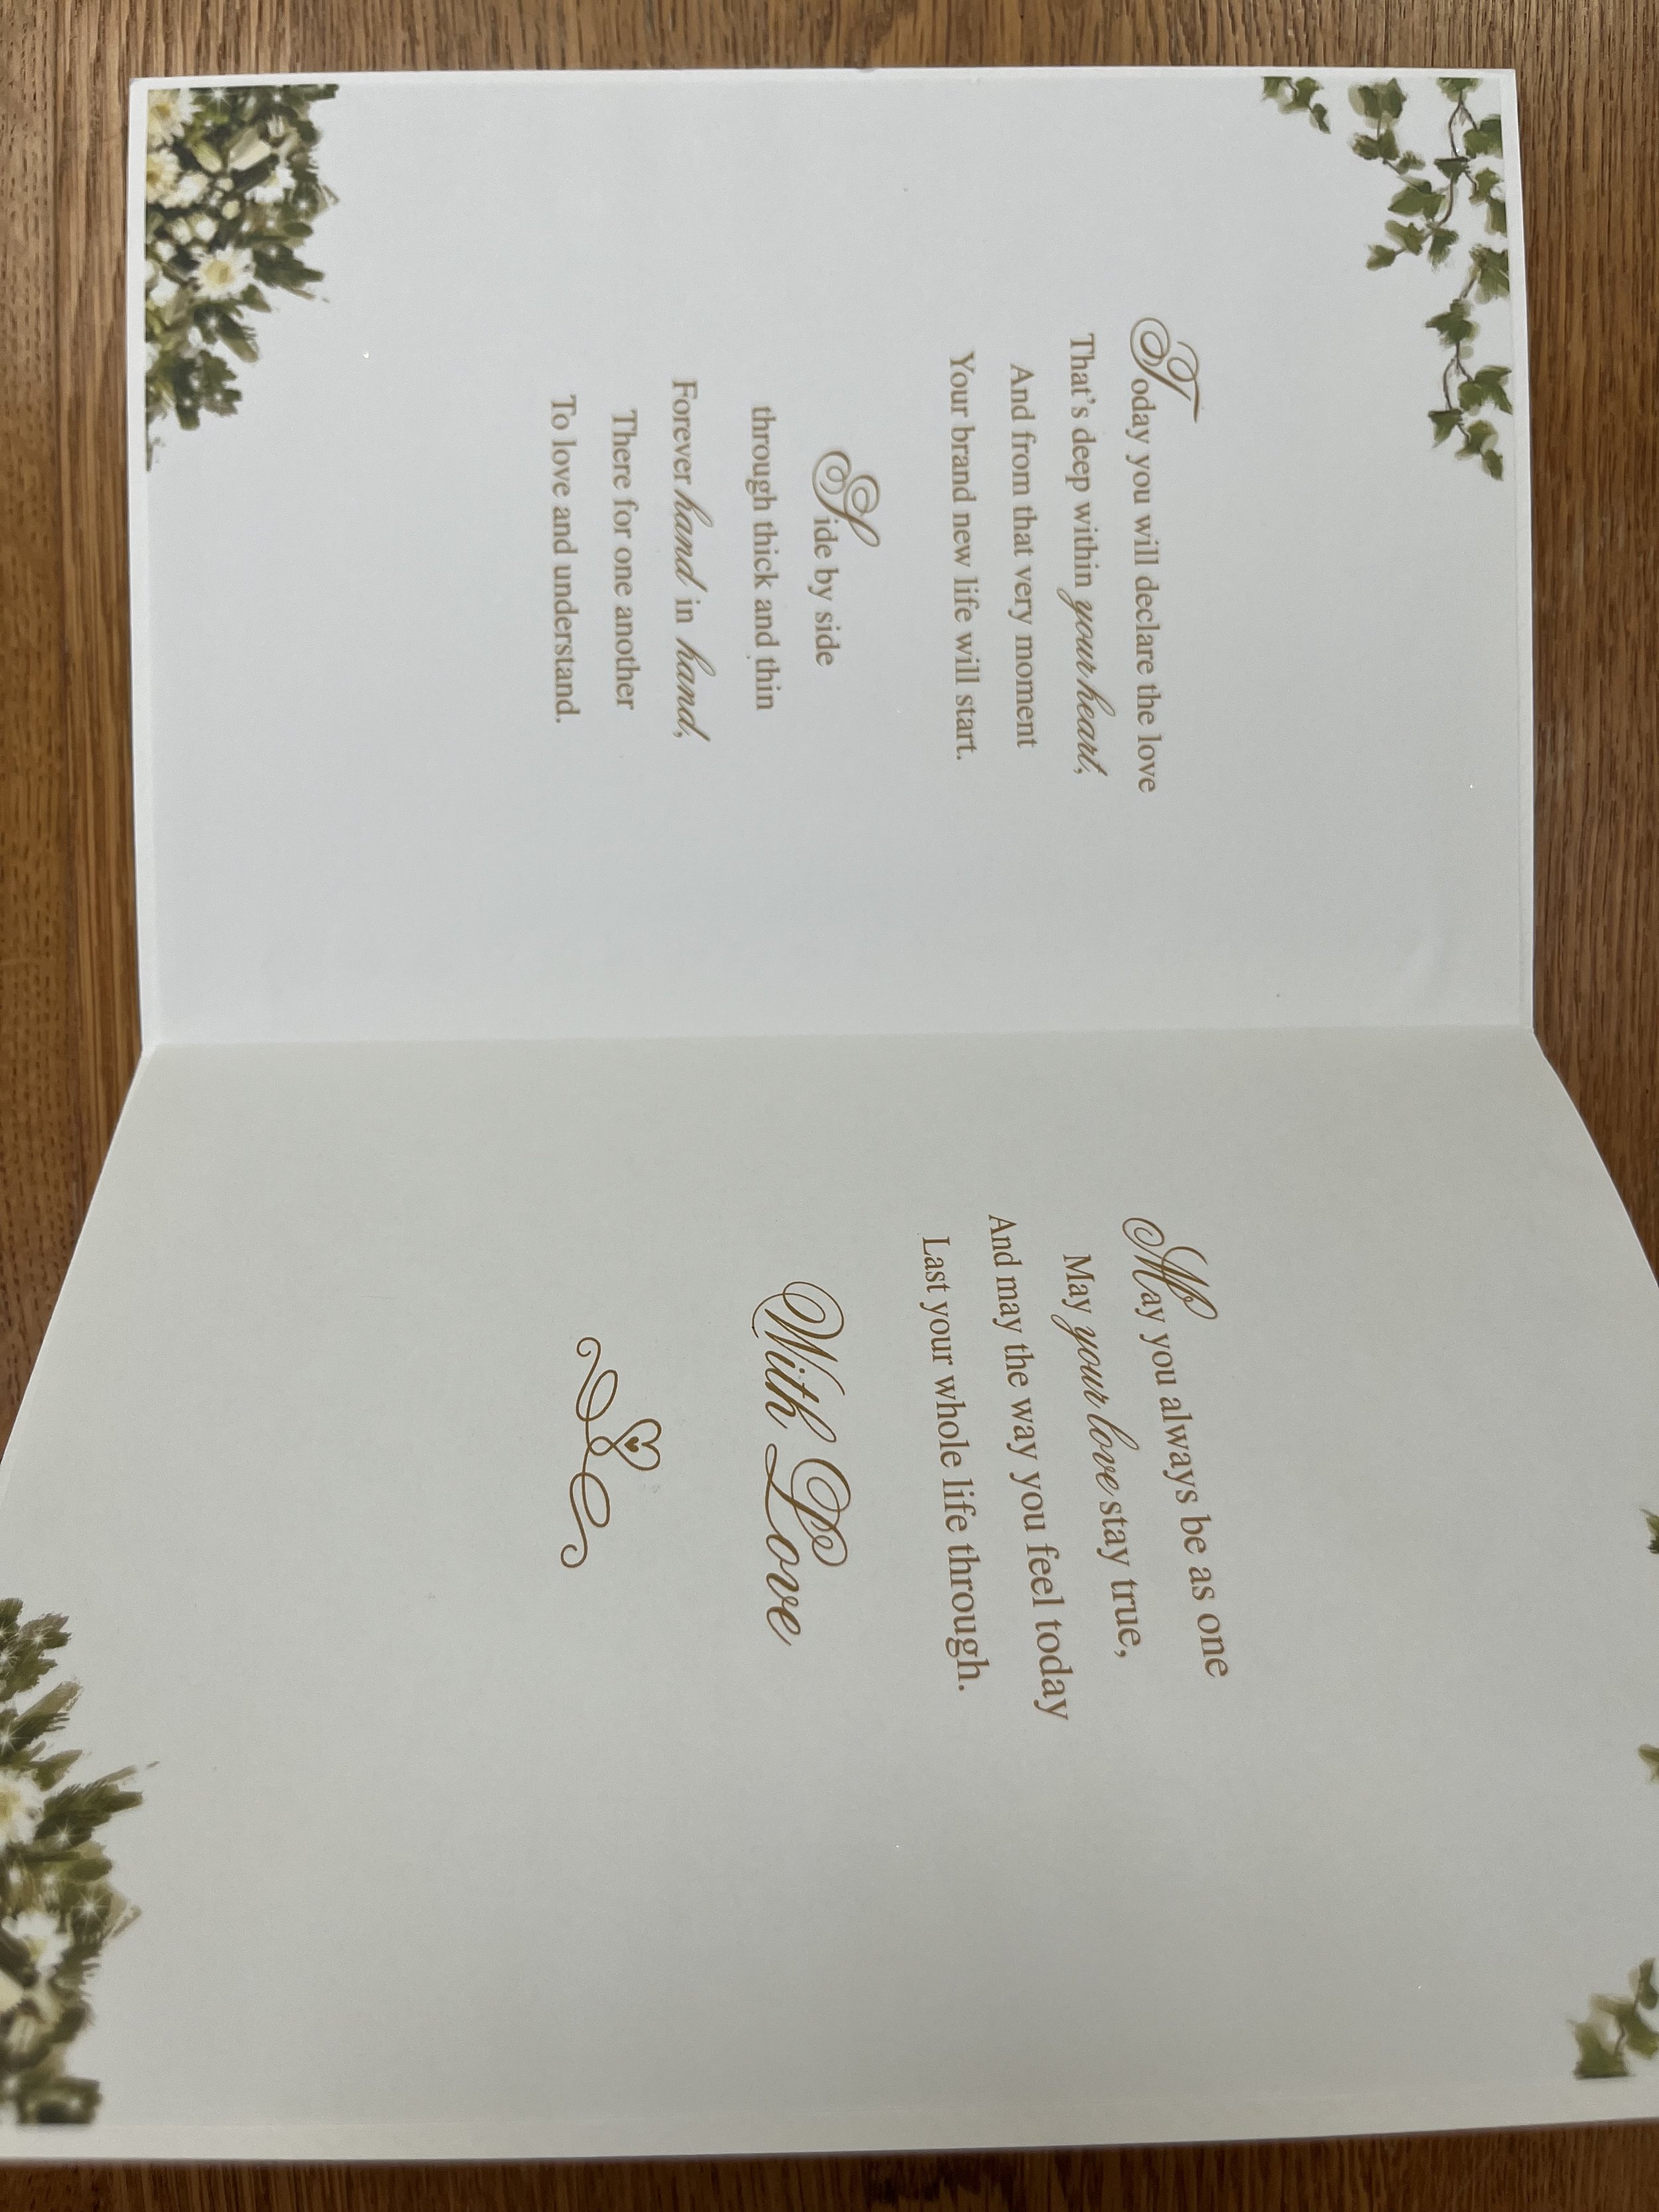 Today you will declare the love
That's deep within your heart,
And from that very moment
Your brand new life will start.
Side by side
through thick and thin
Forever hand in hand,
There for one another
To love and understand.
May you always be as one
May your love stay true,
And may the way you feel today
Last your whole life through.
With Love